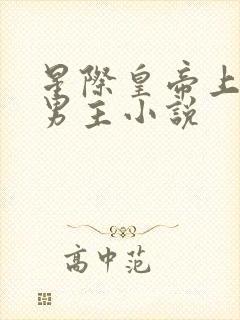 星際皇帝上
男主小說
高中范